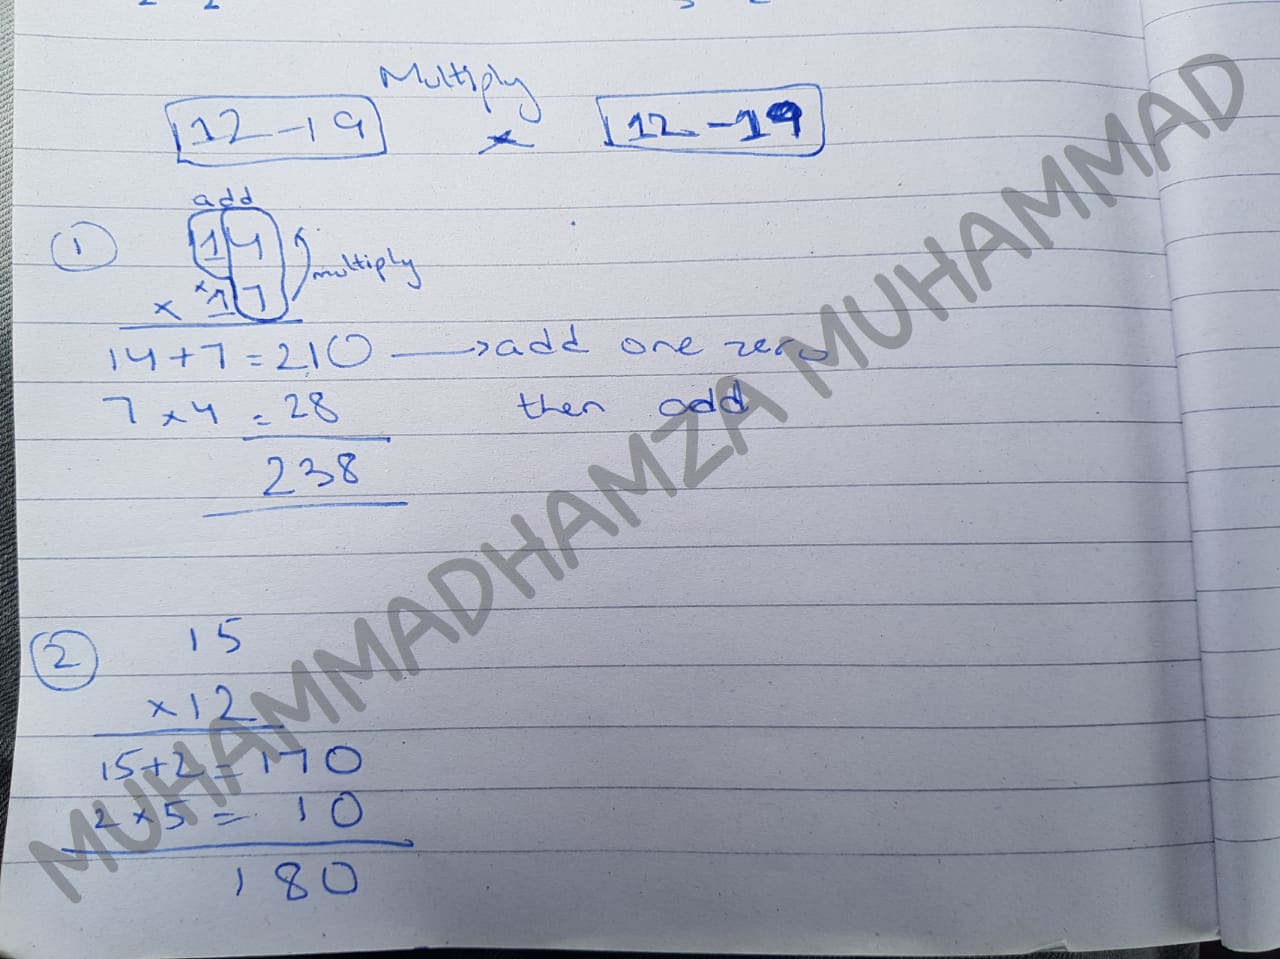 Multiply
12-19 × 12-19
add
① 14
multiply
× 17
14+7=210 → add one zero
7×4=28 then add
238
② 15
×12
15+2=170
2×5=10
180
MUHAMMADHAMZA MUHAMMAD